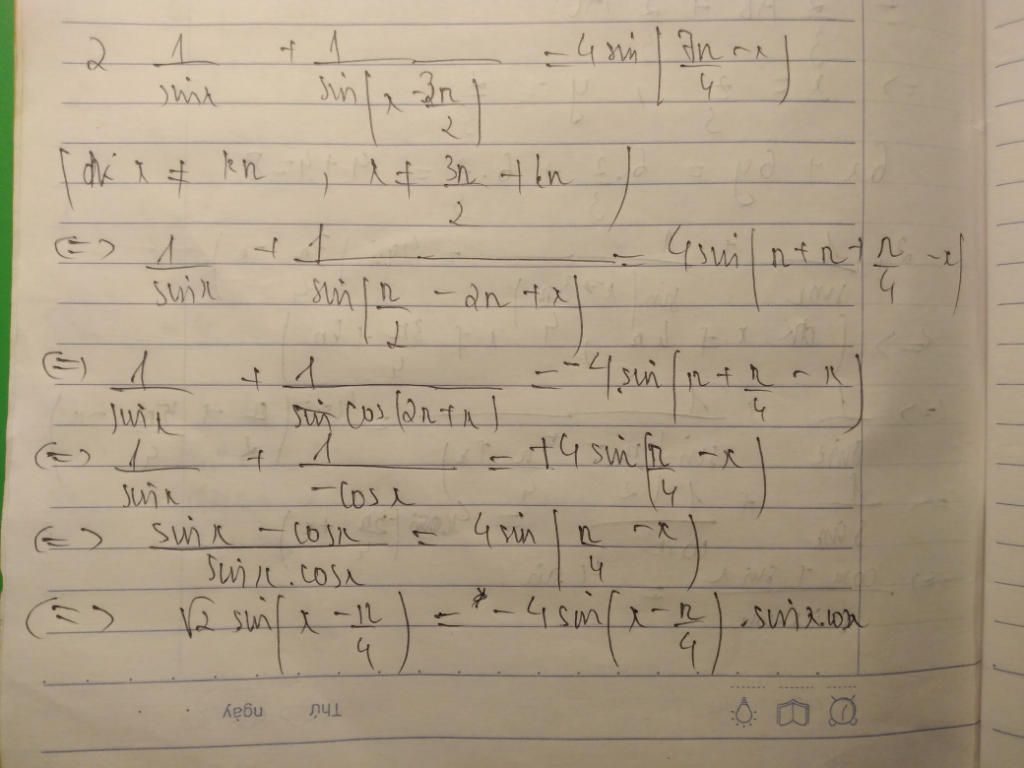 2 1/sinx + 1/sin(x - 3π/2) = 4 sin(7π/4 - x)
(đk x ≠ kπ , x ≠ 3π/2 + kπ)
(=) 1/sinx + 1/sin(π/2 - 2π + x) = 4 sin(π + π + π/4 - x)
(=) 1/sinx + 1/sin cos(2π + x) = -4 sin(π + π/4 - x)
(=) 1/sinx + 1/-cosx = +4 sin(π/4 - x)
(=) sinx - cosx/sinx.cosx = 4 sin(π/4 - x)
(=) √2 sin(x - π/4) = - 4 sin(x - π/4) . sinx.cosx
Thứ ngày